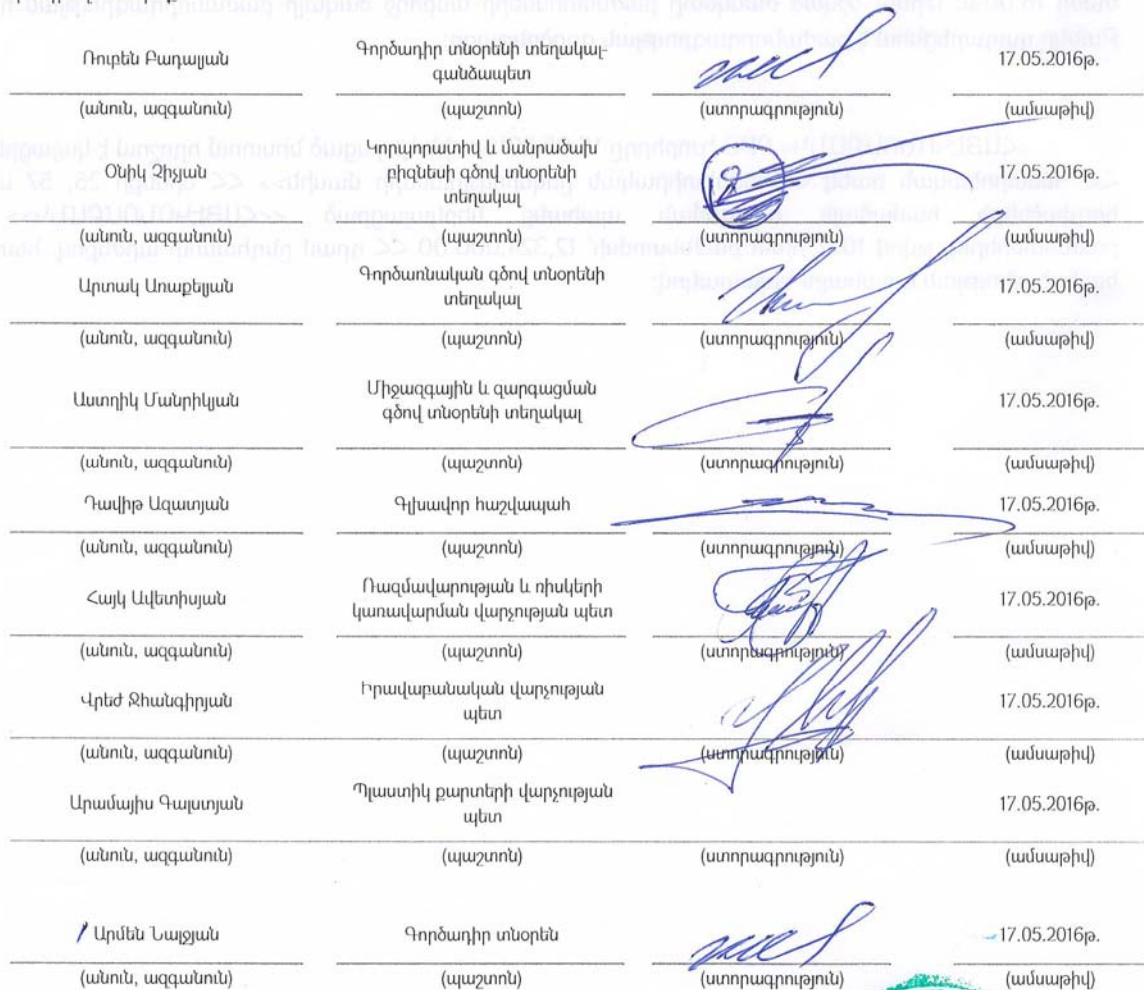 Ռուբեն Բադալյան
Գործադիր տնօրենի տեղակալ-
գանձապետ
17.05.2016թ.
(անուն, ազգանուն) (պաշտոն) (ստորագրություն) (ամսաթիվ)
Օնիկ Չիչյան
Կորպորատիվ և մանրածախ
բիզնեսի գծով տնօրենի
տեղակալ
17.05.2016թ.
(անուն, ազգանուն) (պաշտոն) (ստորագրություն) (ամսաթիվ)
Արտակ Առաքելյան
Գործառնական գծով տնօրենի
տեղակալ
17.05.2016թ.
(անուն, ազգանուն) (պաշտոն) (ստորագրություն) (ամսաթիվ)
Աստղիկ Մանրիկյան
Միջազգային և զարգացման
գծով տնօրենի տեղակալ
17.05.2016թ.
(անուն, ազգանուն) (պաշտոն) (ստորագրություն) (ամսաթիվ)
Դավիթ Ազատյան Գլխավոր հաշվապահ 17.05.2016թ.
(անուն, ազգանուն) (պաշտոն) (ստորագրություն) (ամսաթիվ)
Հայկ Ավետիսյան
Ռազմավարության և ռիսկերի
կառավարման վարչության պետ
17.05.2016թ.
(անուն, ազգանուն) (պաշտոն) (ստորագրություն) (ամսաթիվ)
Վրեժ Ջհանգիրյան
Իրավաբանական վարչության
պետ
17.05.2016թ.
(անուն, ազգանուն) (պաշտոն) (ստորագրություն) (ամսաթիվ)
Արամայիս Գալստյան
Պլաստիկ քարտերի վարչության
պետ
17.05.2016թ.
(անուն, ազգանուն) (պաշտոն) (ստորագրություն) (ամսաթիվ)
Արմեն Նալջյան Գործադիր տնօրեն 17.05.2016թ.
(անուն, ազգանուն) (պաշտոն) (ստորագրություն) (ամսաթիվ)